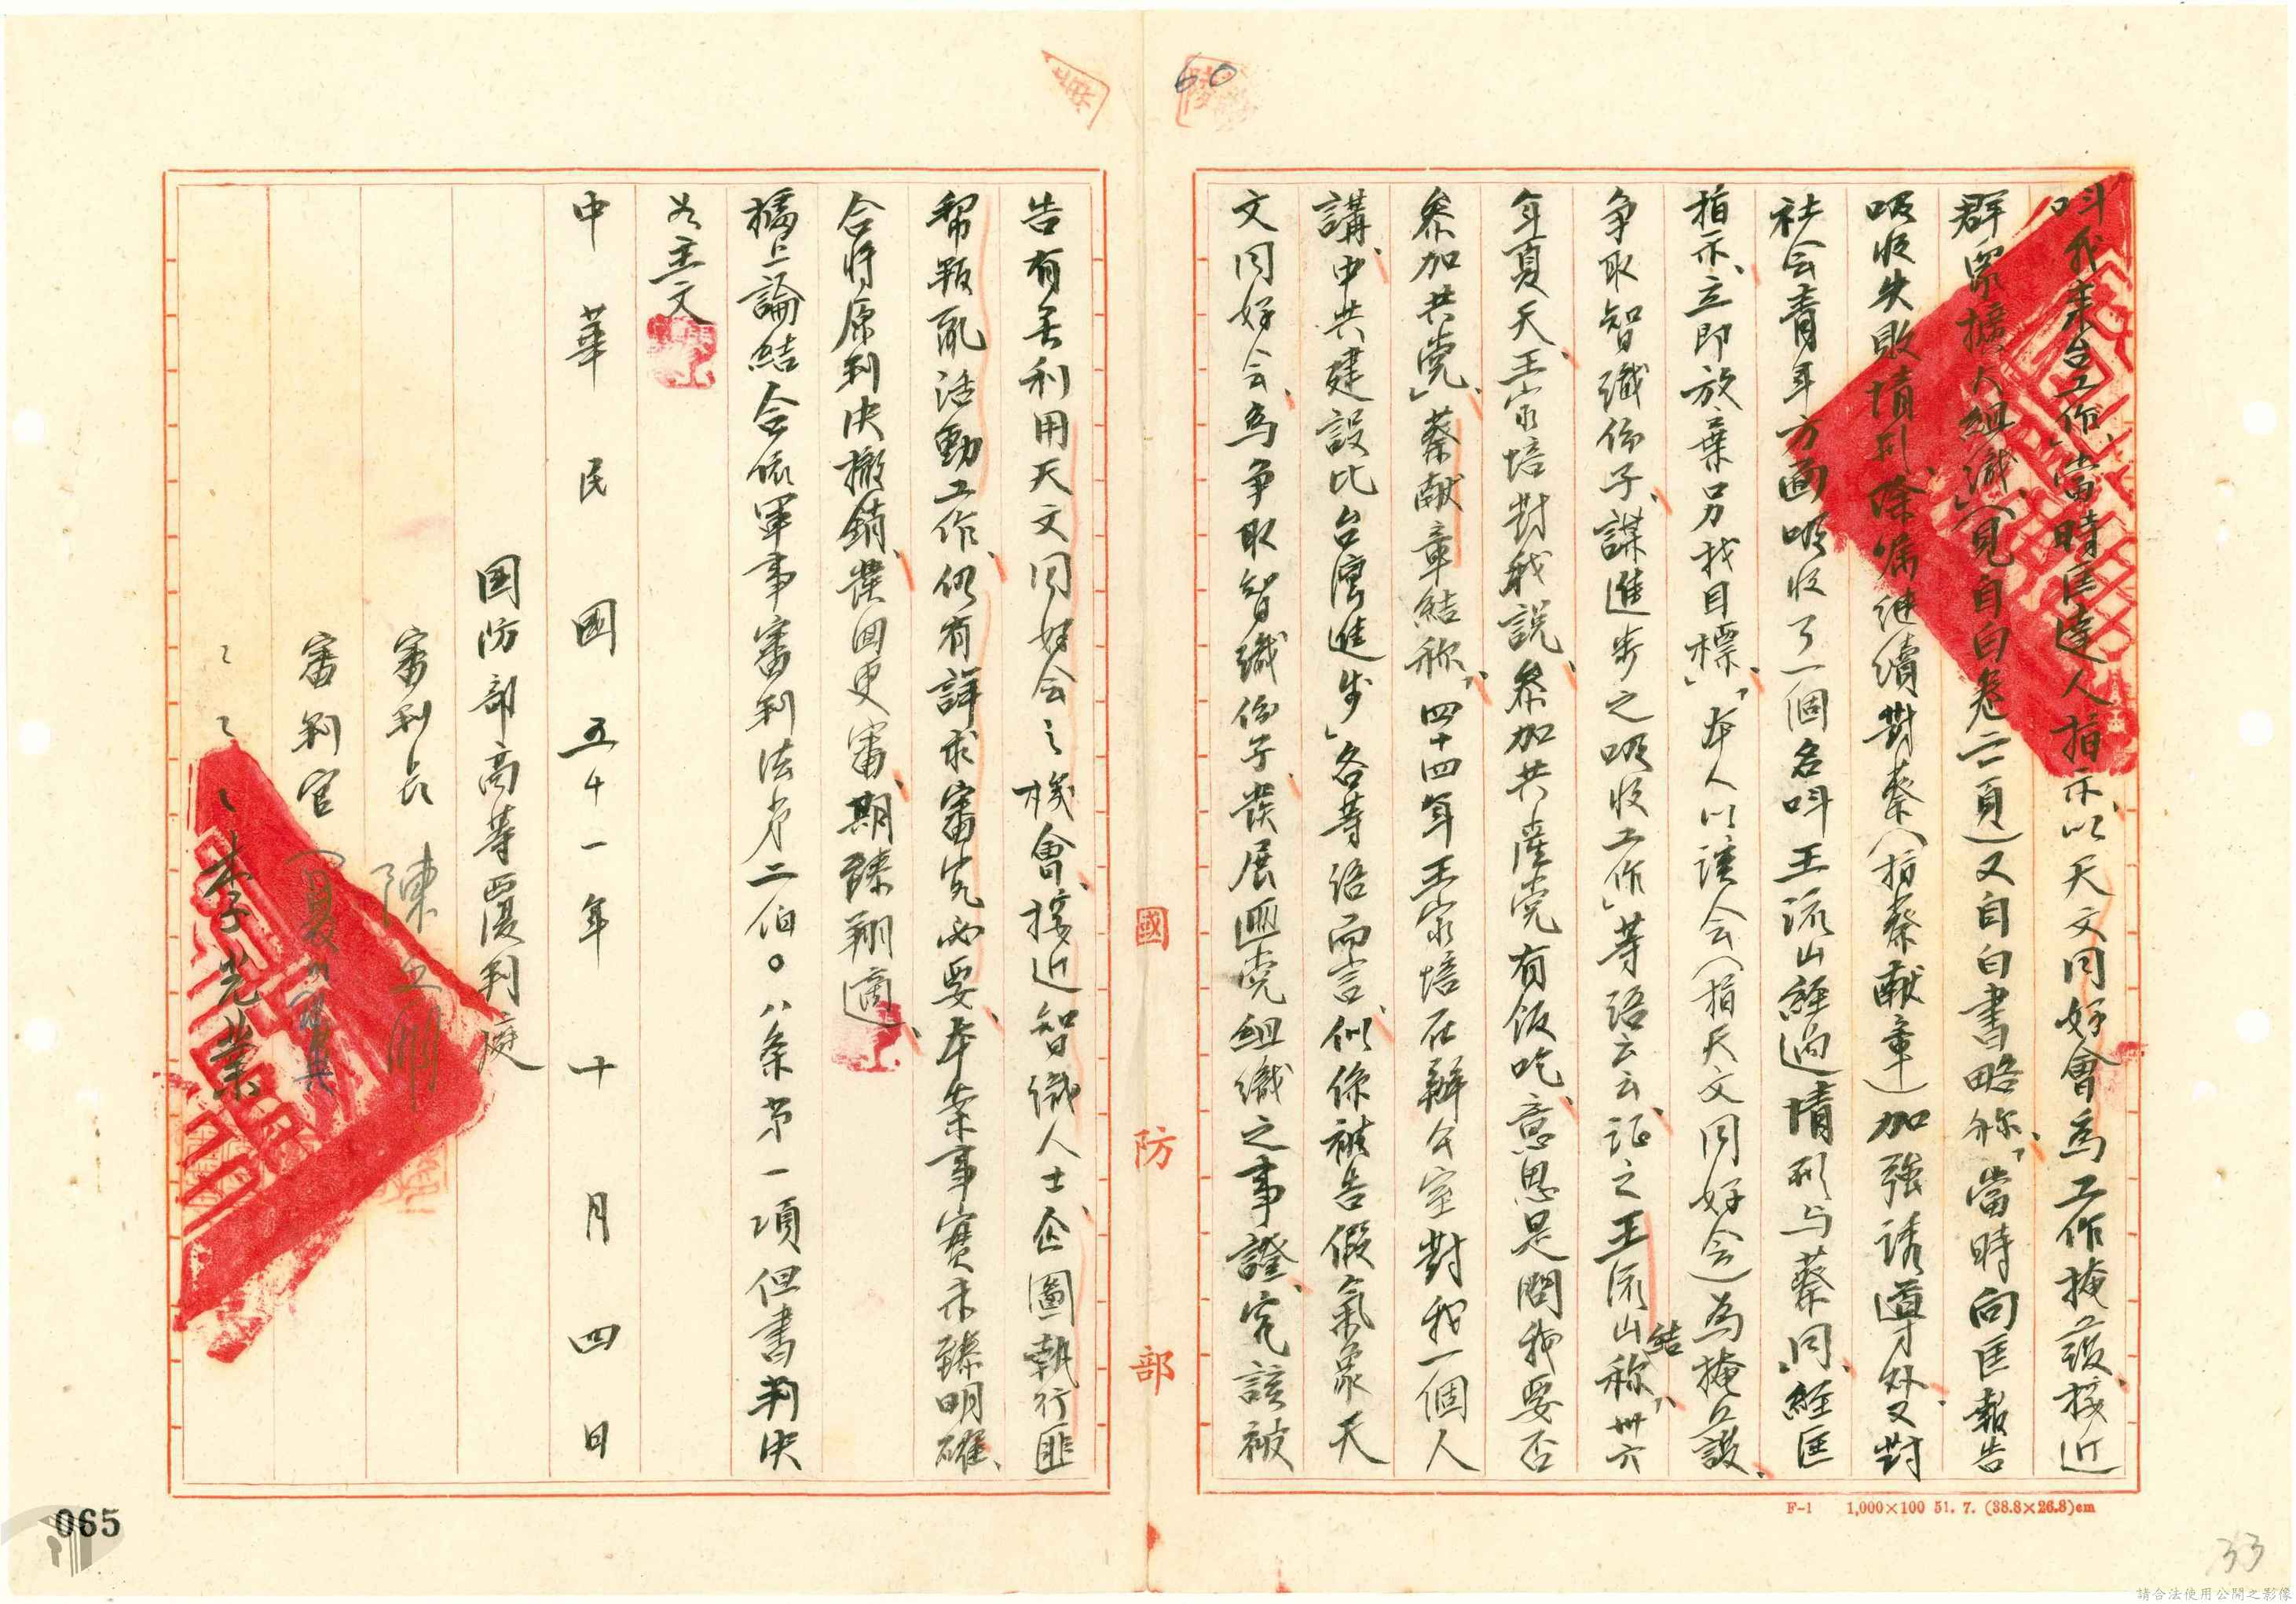 60
叫我來台工作、當時匡達人指示、以天文同好會為工作掩護、接近
群眾擴大組織」(見自白卷二頁)又自白書略称、「當時向匡報告
吸收失敗情形、除嘱继續對蔡(指蔡献章)加強誘導外、又對
社会青年方面吸收了一個名叫王流山經過情形与蔡同、經匡
指示、立即放棄另找目標」、「本人以該会(指天文同好会)為掩護、
争取智識份子、謀進步之吸收工作」等語云云、证之王流山結称、「卅六
年夏天、王宗培對我説、参加共產党有飯吃、意思是問我要否
参加共党」、蔡献章結称、「四十四年王宗培在辦公室對我一個人
講、中共建設比台湾進步」各等语而言、似係被告假氣象天
文同好会、為争取智識份子發展匪党組織之事證、究該被
國防部
告有無利用天文同好会之機會、接近智識人士、企圖執行匪
幫叛亂活動工作、仍有詳求審究必要、本案事實未臻明確、
合將原判決撤銷、發回更審、期臻翔適、
據上論結合依軍事審判法第二佰〇八条第一項但書判決
如主文
中華民國五十一年十月四日
国防部高等覆判庭
審判長 陳
審判官 夏
〃〃〃 李光業
F-1 1,000×100 51. 7. (38.8×26.8)cm
065
33
請合法使用公開之影像